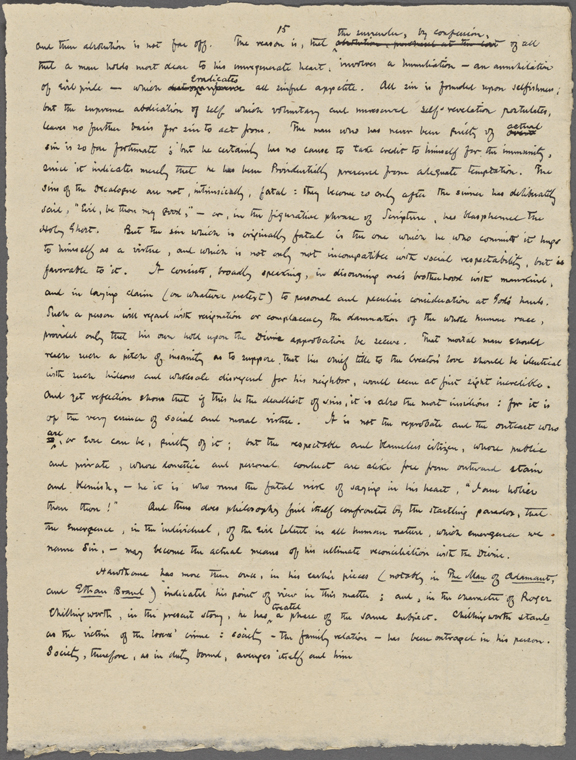 15
the surrender, by confession,
and then absolution is not far off. The reason is, that of all
that a man holds most dear to his unregenerate heart, involves a humiliation – an annihilation
eradicates
of evil pride – which all sinful appetite. All sin is founded upon selfishness;
but the supreme abdication of self which voluntary and unreserved self-revelation postulates,
leaves no further basis for sin to act from. The man who has never been guilty of actual
sin is so far fortunate; but he certainly has no cause to take credit to himself for the immunity,
since it indicates merely that he has been Providentially preserved from adequate temptation. The
sins of the Decalogue are not, intrinsically, fatal: they become so only after the sinner has deliberately
said, "Evil, be thou my Good," – or, in the figurative phrase of Scripture, has blasphemed the
Holy Ghost. But the sin which is originally fatal is the one which he who commits it hugs
to himself as a virtue, and which is not only not incompatible with social respectability, but is
favorable to it. It consists, broadly speaking, in disowning one's brotherhood with mankind,
and in laying claim (on whatever pretext) to personal and peculiar consideration at God's hands.
Such a person will regard with resignation or complacency the damnation of the whole human race,
provided only that his own hold upon the Divine approbation be secure. That mortal man should
reach such a pitch of insanity as to suppose, that his chief title to the Creator's love should be identical
with such hideous and wholesale disregard for his neighbor, would seem at first sight incredible.
And yet reflection shows that if this be the deadliest of sins, it is also the most insidious: for it is
of the very essence of social and moral virtue. It is not the reprobate and the outcast who
are, or ever can be, guilty of it; but the respectable and blameless citizen, whose public
and private, whose domestic and personal conduct are alike free from outward stain
and blemish, – he it is who runs the fatal risk of saying in his heart, "I am holier
than thou!" And thus does philosophy find itself confronted by the startling paradox, that
the emergence, in the individual, of the evil latent in all human nature, which emergence we
name Sin, – may become the actual means of his ultimate reconciliation with the Divine.
Hawthorne has more than once, in his earlier pieces (notably in The Man of Adamant,
and Ethan Brand) indicated his point of view in this matter; and, in the character of Roger
Chillingworth, in the present story, he has treated a phase of the same subject. Chillingworth stands
as the victim of the lovers' crime: society – the family relation – has been outraged in his person.
Society, therefore, as in duty bound, avenges itself and him